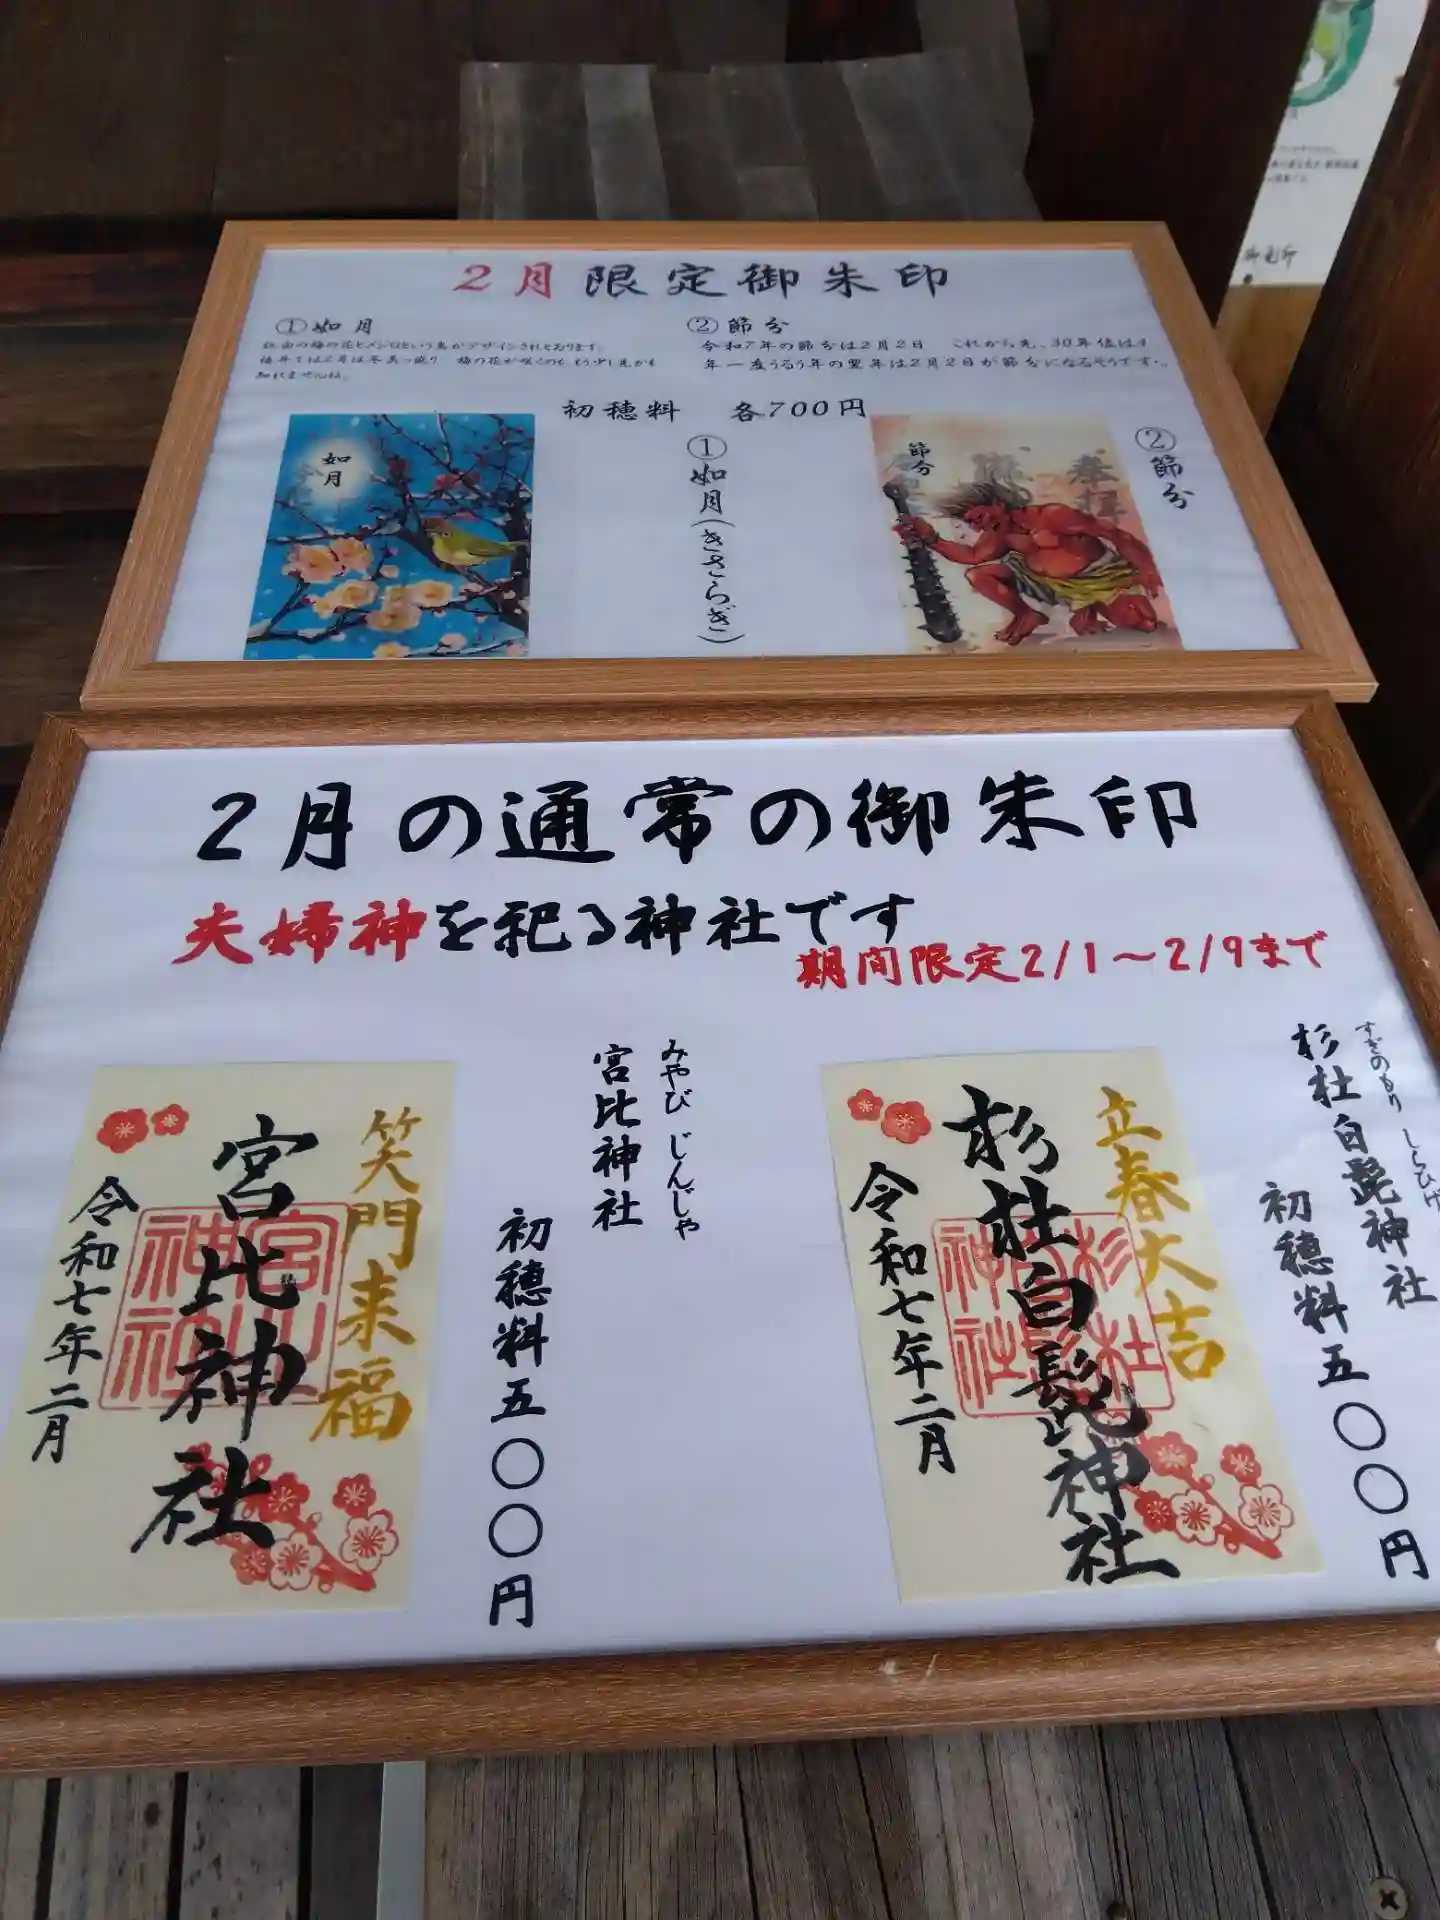 2月限定御朱印
①如月
福井では2月は冬真っ盛り 梅の花が咲くのも、もう少し先かも
知れませんね。
②節分
令和7年の節分は2月2日 これから先、30年位は4
年一度うるう年の翌年は2月2日が節分になるそうです。
初穂料 各700円
如月
①如月(きさらぎ)
節分
奉拝
②節分
2月の通常の御朱印
夫婦神を祀る神社です
期間限定2/1〜2/9まで
すぎのもり しらひげ
杉杜白髭神社
初穂料五〇〇円
立春大吉
杉杜白髭神社
令和七年二月
みやび じんじゃ
宮比神社
初穂料五〇〇円
笑門来福
宮比神社
令和七年二月
御朱印